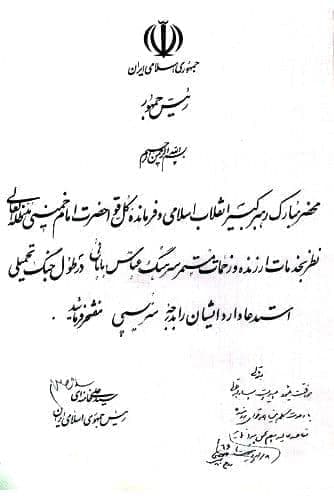 جمهوری اسلامی ایران
رئیس جمهور
بسم الله الرحمن الرحیم
محضر مبارک رهبر کبیر انقلاب اسلامی و فرمانده کل قوا حضرت امام خمینی مدظله العالی
نظر بخدمات ارزنده و زحمات مستمر سرهنگ عباس بابائی در طول جنگ تحمیلی
استدعا دارد ایشان را بدرجه سرتیپی مفتخر فرمائید
سید علی خامنه‌ای
رئیس جمهوری اسلامی ایران
بسمه تعالی
موافقت میشود